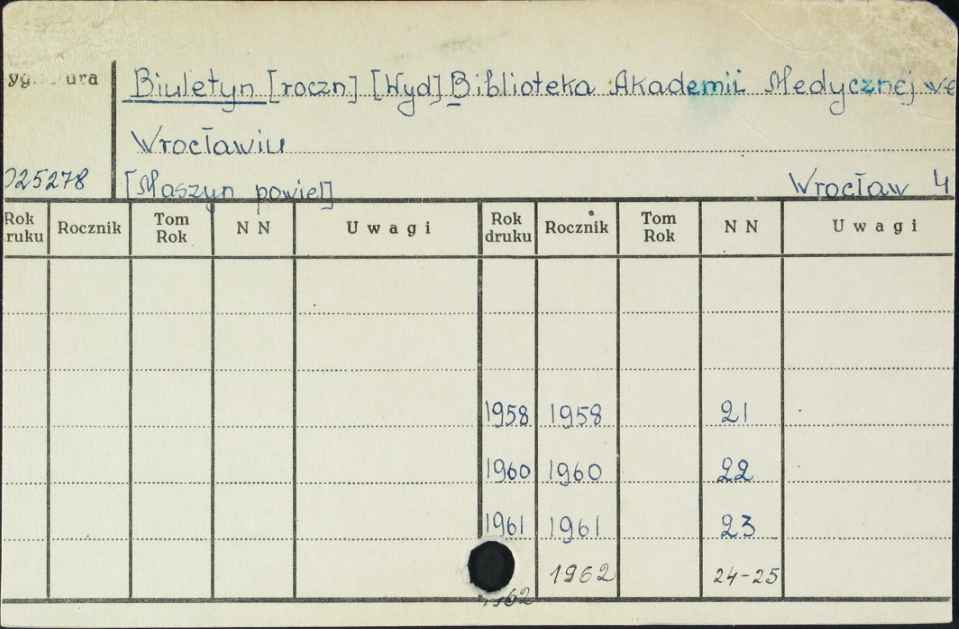 Biuletyn [roczn] [Wyd] Biblioteka Akademii Medycznej we
Wrocławiu
025278 [Maszyn powiel] Wrocław 4
Rok ruku Rocznik Tom Rok N N Uwagi Rok druku Rocznik Tom Rok N N Uwagi
1958 1958 21
1960 1960 22
1961 1961 23
1962 24-25